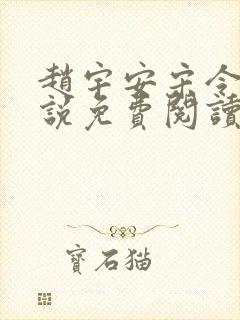 趙宇安宋令
說免費閱讀
寶石猫